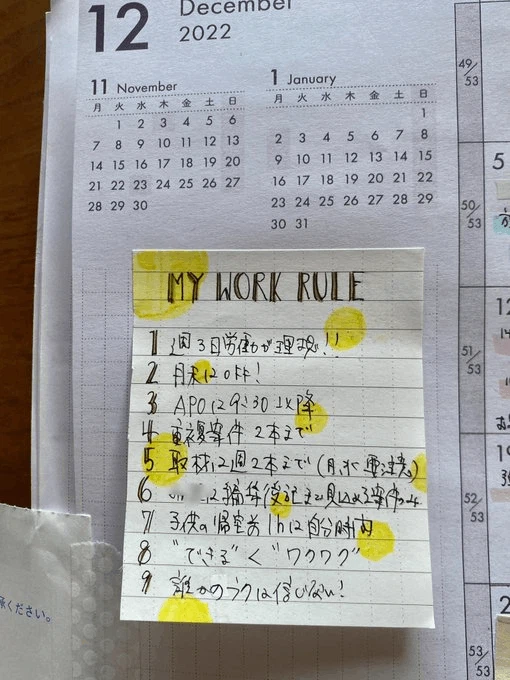 12
December
2022
11 November
月 火 水 木 金 土 日
1 2 3 4 5 6
7 8 9 10 11 12 13
14 15 16 17 18 19 20
21 22 23 24 25 26 27
28 29 30
1 January
月 火 水 木 金 土 日
1
2 3 4 5 6 7 8
9 10 11 12 13 14 15
16 17 18 19 20 21 22
23 24 25 26 27 28 29
30 31
49/53
50/53
51/53
52/53
53/53
5
12
19
MY WORK RULE
1 週3日労働が理想!!
2 月末はOFF!
3 APOは9:30以降
4 重複案件 2本まで
5 取材は週2本まで(月、水
6 は編集後記まで見込める案件のみ
7 子供の帰宅前1hは自分時間
8 "できる"く"ワクワク"
9 誰かのラクは信じない!
承ください。